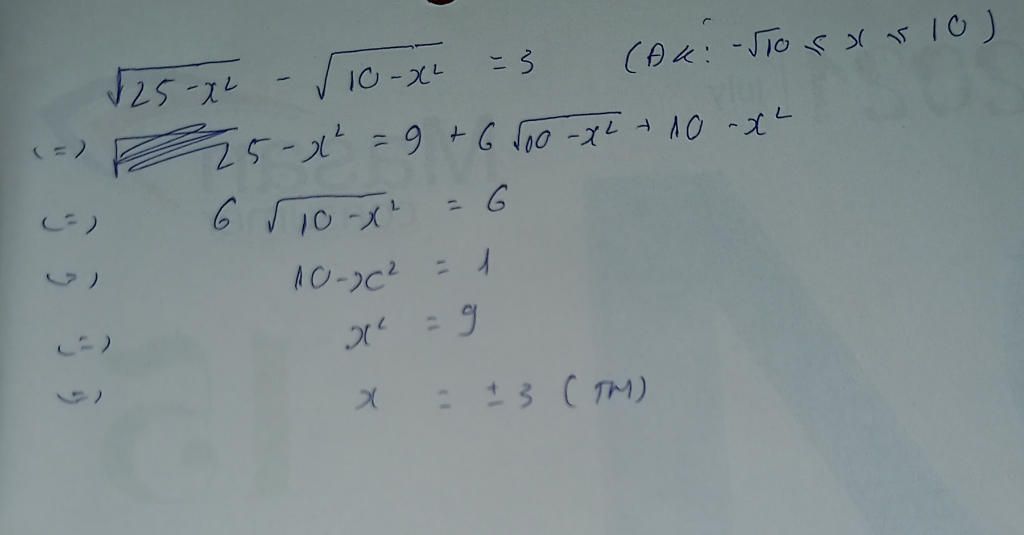 √25-x² - √10-x² = 3 (ĐK: -√10 ≤ x ≤ 10)
(=) 25-x² = 9 + 6 √10-x² + 10 -x²
(=) 6 √10-x² = 6
(=) 10-x² = 1
(=) x² = 9
(=) x = ±3 (TM)